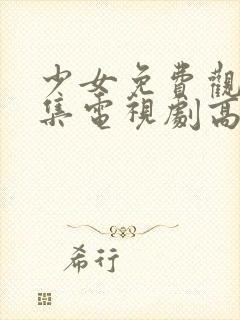 少女免費觀
集電視劇高
希行